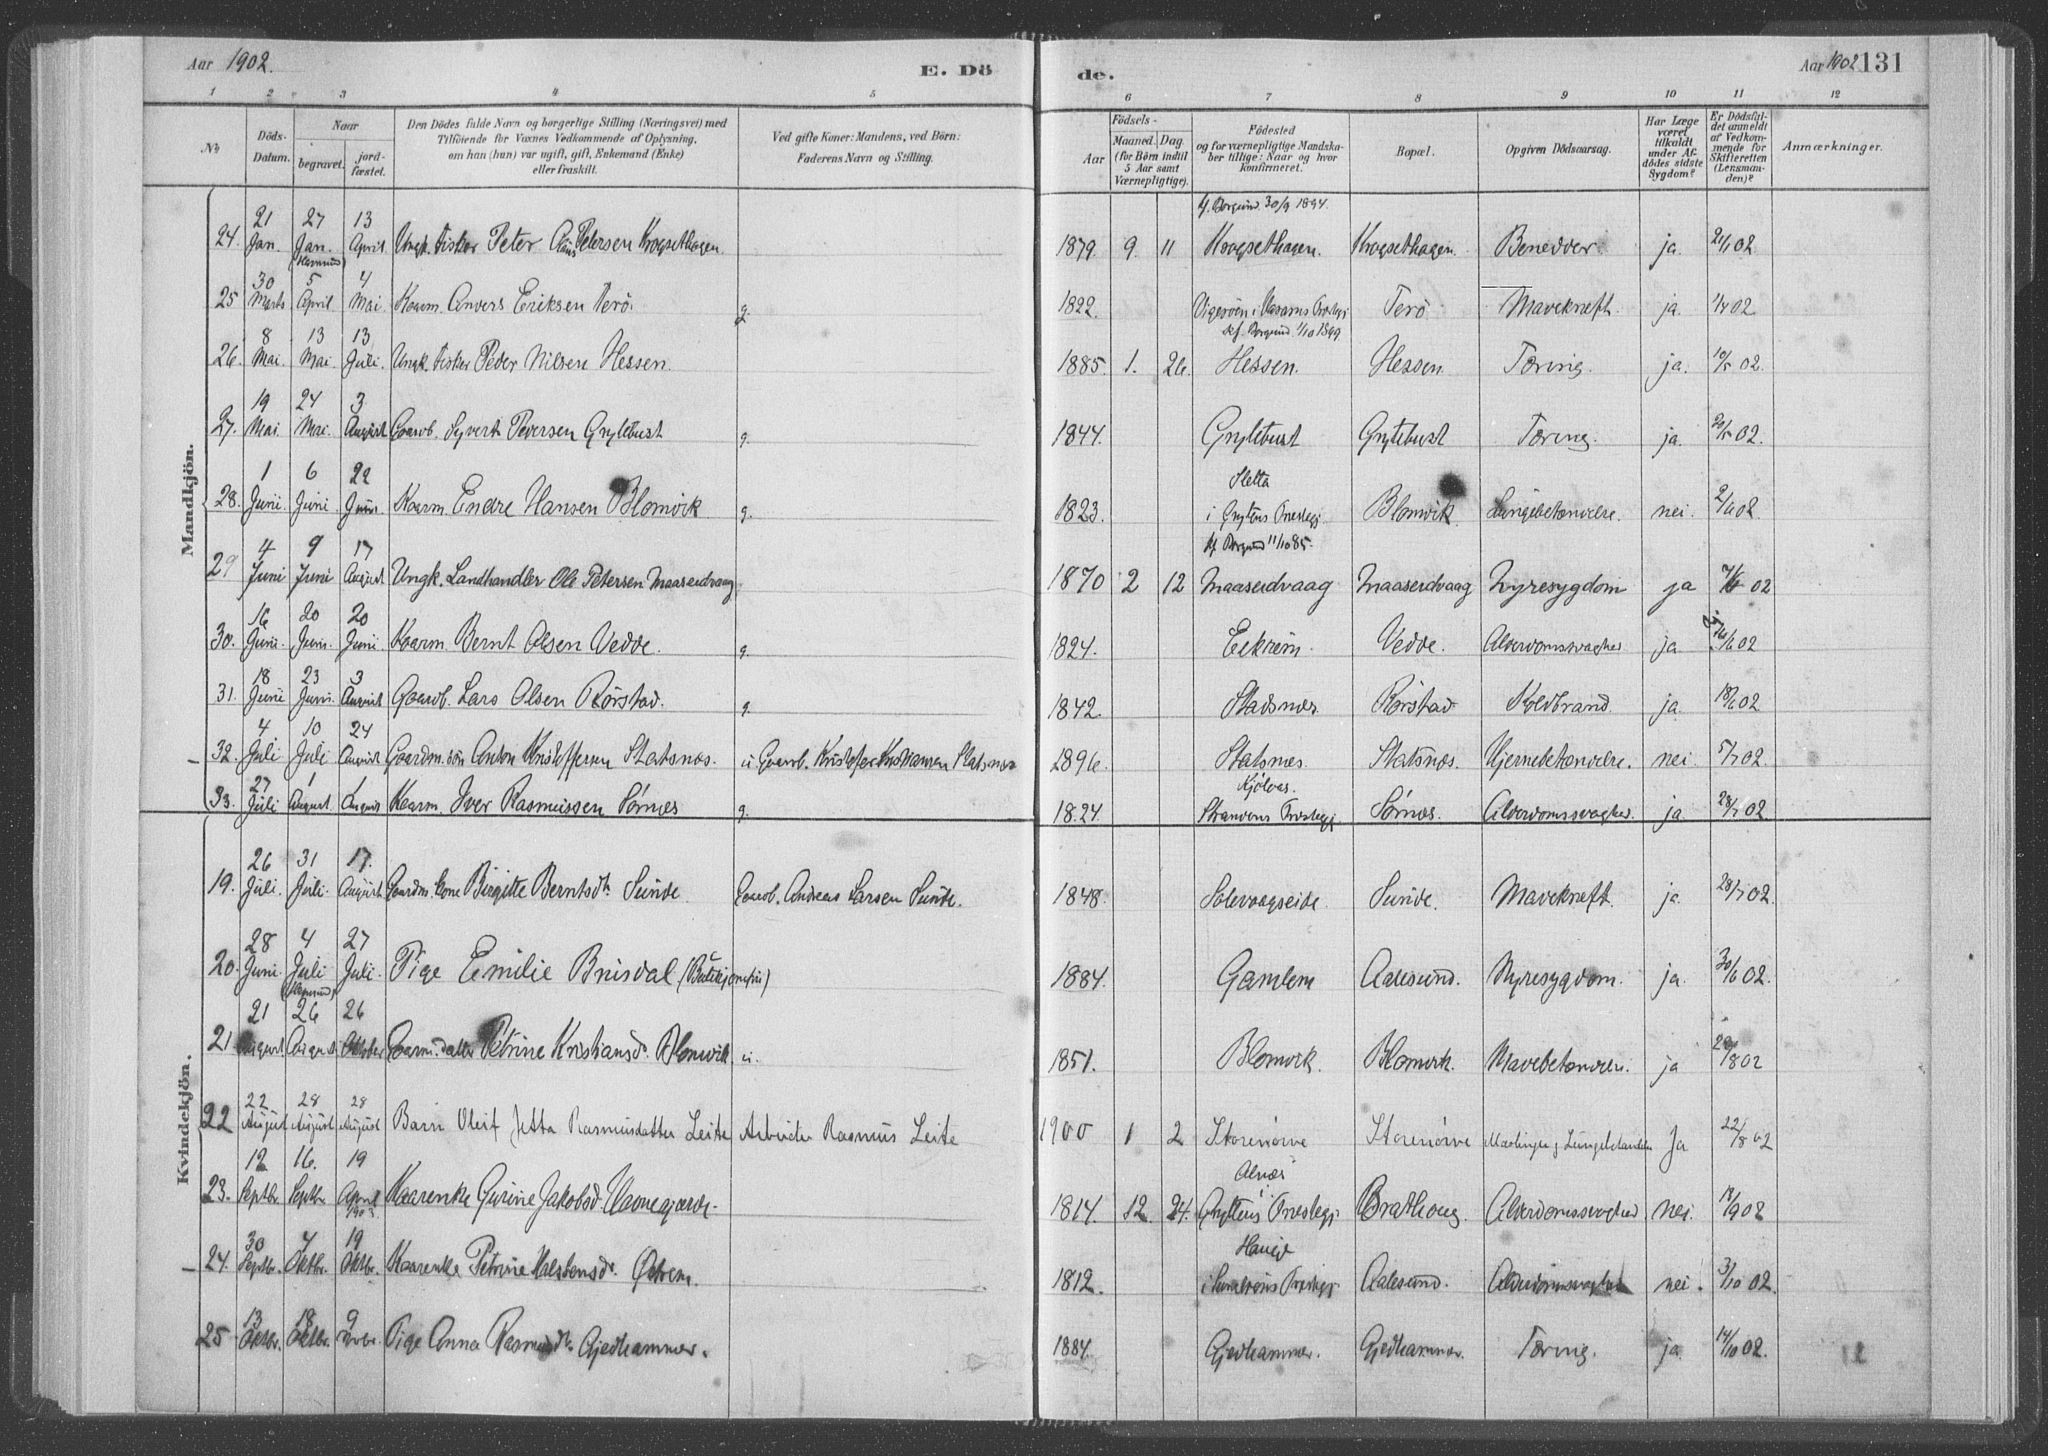 Aar 1902. E. Dö de. Aar 1902 131
1 2 3 4 5 6 7 8 9 10 11 12
No.
Döds-Datum.
Naar
begravet.
jord-fæstet.
Den Dödes fulde Navn og borgerlige Stilling (Næringsvei) med
Tilföiende for Voxnes Vedkommende af Oplysning,
om han (hun) var ugift, gift, Enkemand (Enke)
eller fraskilt.
Ved gifte Koner: Mandens, ved Börn:
Faderens Navn og Stilling.
Aar
Födsels-
Maaned. Dag.
(for Börn indtil
5 Aar samt
Værnepligtige).
Födested
og for værnepligtige Mandska-
ber tillige: Naar og hvor
konfirmeret.
Bopæl.
Opgiven Dödsaarsag.
Har Læge
været
tilkaldt
under Af-
dödes sidste
Sygdom?
Er Dödsfal-
det anmeldt
af Vedkom-
mende for
Skifteretten
(Lensman-
den)?
Anmærkninger.
Mandkjön.
kf. Borgund 30/9 1894.
24. 21 Jan. 27 Jan. 13 April Ungk. Fisker Peter Petersen Krogsethagen 1879. 9. 11 Krogsethagen. Krogsethagen. Benedder. ja. 21/1 02
25 30 Marts 5 April 4 Mai Kaarm. Anders Eriksen Terö. g. 1822. Vigeröen i Terö Mavekræft. ja. 1/4 02
kf. Borgund 1/10 1899
26. 8 Mai. 13 Mai. 13 Juli. Ungk. Fisker Peder Nilsen Hessen. 1885. 1. 26. Hessen. Hessen Tæring. ja. 10/5 02.
27. 19 Mai. 24 Mai. 3 August Gaardb. Syvert Pedersen Grytebust g. 1844. Grytebust Grytebust Tæring. ja. 20/5 02.
28. 1 Juni. 6 Juni 22 Juni. Kaarm. Endre Hansen Blomvik g. 1823. Sletta i Gryten Præstegj. Blomvik. Lungebetændelse. nei. 2/6 02.
kf. Borgund 11/10 85.
29 4 Juni 9 Juni 17 August Ungk. Landhandler Ole Petersen Maaseidvaag 1870 2 12 Maaseidvaag Maaseidvaag Nyresygdom ja 7/6 02
30. 16 Juni. 20 Juni. 20 Juni Kaarm. Bernt Olsen Vedde. g. 1824. Eekrem. Vedde. Alderdomssvaghed ja 16/6 02
31. 18 Juni 23 Juni. 3 August Gaardb. Lars Olsen Rörstad. g. 1842. Stadsnes Rörstad Koldbrand. ja. 18/6 02
32. 4 Juli 10 Juli 24 August Gaardm. sön Anton Kristoffersen Statsnes. u. Gaardb. Kristofer Kristiansen Statsnes 1896. Statsnes. Statsnes. Hjernebetændelse. nei. 5/7 02.
33. 27 Juli 1 August. 1 August Kaarm. Iver Rasmussen Sørnes g. 1824. Kjölaas. Strandens Præstegj. Sørnes. Alderdomssvaghed. ja 28/7 02
Kvindekjön.
19. 26 Juli. 31 Juli. 17. August Gaardm. Kone Birgitte Berntsdtr. Sunde Gaardb. Andreas Larsen Sunde. 1848. Solevaagseide. Sunde. Mavekræft. ja. 28/7 02.
20. 28 Juni. 4 Juli 27 Juli. Pige Emilie Brusdal 1884. Gamlem Aalesund. Nyresygdom. ja. 30/6 02.
21. 21 August 26 August 26 Oktober Gaarm. datter Petrine Kristiansdtr. Blomvik u. 1851. Blomvik. Blomvik. Mavebetændelse. ja /8 02
22 22 August 28 August 28 August Barn Oleif Jetta Rasmusdatter Leite Arbeider Rasmus Leite 1900 1 2 Storenörve Storenörve Mæslinger & Lungebetændelse Ja 22/8 02
23. 12 Septbr. 16. Septbr. 19 April 1903 Kaarenke Gurine Jakobsd. 1814. 12. 24. Alnæs i Gryttens Præstegj. Bratholm. Alderdomssvaghed. nei. 18/9 02
24. 30 Septbr. 4 Oktbr. 19 Oktbr. Kaarenke Petrine Halstensdr. Østrem. 1812. i Præstegj. Aalesund. Alderdomssvaghed nei. 3/10 02.
25 13 Oktbr. 18 Oktbr. 9 Novbr. Pige Anna Rasmusdtr. Gjedhammer. 1884. Gjedhammer. Gjedhammer. Tæring. ja. 14/10 02.